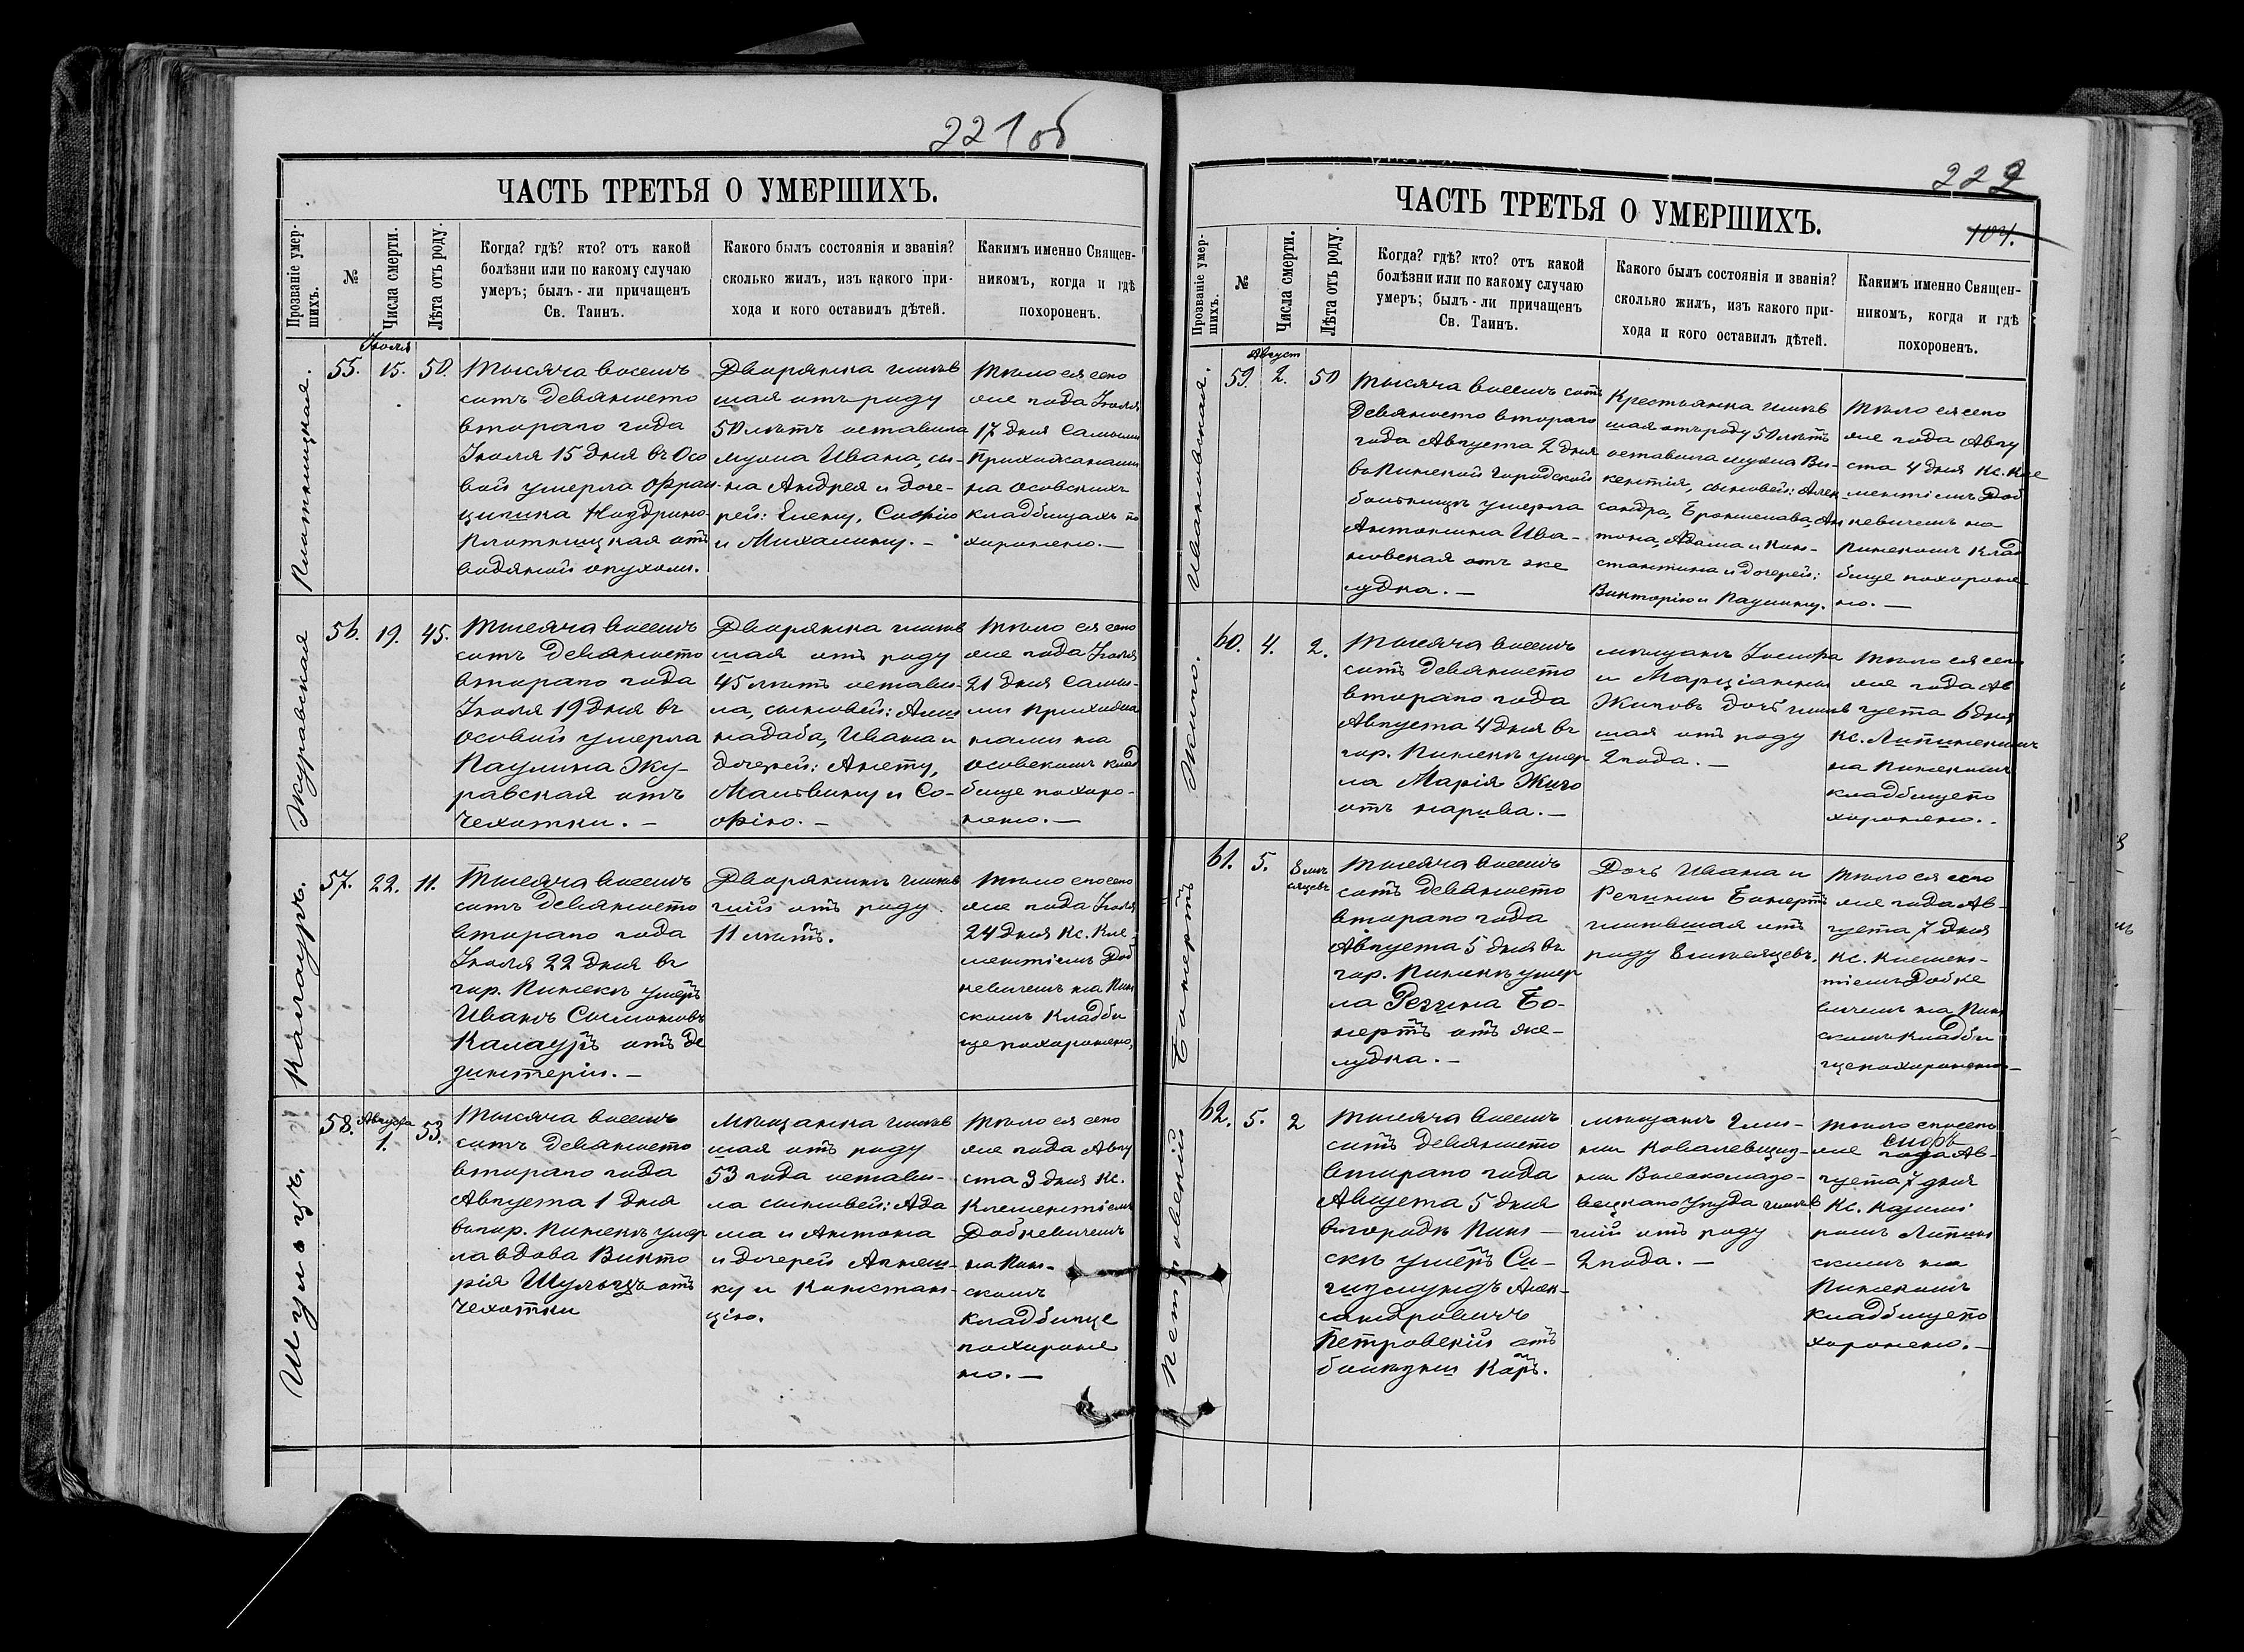 221об
ЧАСТЬ ТРЕТЬЯ О УМЕРШИХЪ.
Прозваніе умер-
шихъ.
№
Числа смерти.
Лѣта отъ роду.
Когда? гдѣ? кто? отъ какой
болѣзни или по какому случаю
умеръ; былъ-ли причащенъ
Св. Таинъ.
Какого былъ состоянія и званія?
сколько жилъ, изъ какого при-
хода и кого оставилъ дѣтей.
Какимъ именно Священ-
никомъ, когда и гдѣ
похороненъ.
Плотницкая.
55.
Іюля
15.
50.
Тысяча восемь
сотъ девяносто
втораго года
Іюля 15 дня въ Осо
вой умерла Фран-
цишка Ноздрино-
Плотницкая отъ
водяной опухоли.
Дворянка жив
шая отъ роду
50 лѣтъ оставила
мужа Ивана, сы-
на Андрея и доче-
рей: Елену, Софію
и Михалину. –
Тѣло ея сего
же года Іюля
17 дня Самыми
Прихожанами
на Осовскихъ
кладбищахъ по
хоронено. –
Журавская
56.
19.
45.
Тысяча восемь
сотъ девяносто
втораго года
Іюля 19 дня въ
Осовой умерла
Паулина Жу-
равская отъ
чехотки. –
Дворянка жив
шая отъ роду
45 лѣтъ остави-
ла, сыновей:
Ивана и
дочерей: Анету,
Мальвину и Со-
фію. –
Тѣло ея сего
же года Іюля
21 дня Самы-
ми прихожа
нами на
Осовскомъ клад
бище похоро-
нено. –
Калауръ.
57.
22.
11.
Тысяча восемь
сотъ девяносто
втораго года
Іюля 22 дня въ
гор. Пинскѣ умеръ
Иванъ Сымоновъ
Калауръ отъ ди
зинтеріи. –
Дворянинъ жив
шій отъ роду
11 лѣтъ.
Тѣло его сего
же года Іюля
24 дня Кс. Кле
ментіемъ Доб
невичемъ на Пин
скомъ Кладби
ще похоронено.
Шульцъ.
58.
Августа
1.
53.
Тысяча восемь
сотъ девяносто
втораго года
Августа 1 дня
въ гор. Пинскѣ умер
ла вдова Викто
рія Шульцъ отъ
чехотки
Мѣщанка жив
шая отъ роду
53 года остави-
ла сыновей: Ада
ма и Антона
и дочерей Агнеш-
ку и Констан-
цію.
Тѣло ея сего
же года Авгу
ста 3 дня Кс.
Клементіемъ
Добневичемъ
на Пин-
скомъ
кладбище
похороне
но. –
222
104.
ЧАСТЬ ТРЕТЬЯ О УМЕРШИХЪ.
Прозваніе умер-
шихъ.
№
Числа смерти.
Лѣта отъ роду.
Когда? гдѣ? кто? отъ какой
болѣзни или по какому случаю
умеръ; былъ-ли причащенъ
Св. Таинъ.
Какого былъ состоянія и званія?
сколько жилъ, изъ какого при-
хода и кого оставилъ дѣтей.
Какимъ именно Священ-
никомъ, когда и гдѣ
похороненъ.
Ивановская.
59.
Август
2.
50
Тысяча восемь сотъ
девяносто втораго
года Августа 2 дня
въ Пинской городской
больницѣ умерла
Антонина Ива-
новская отъ же
лудка. –
Крестьянка жив
шая отъ роду 50 лѣтъ
оставила мужа Ви-
кентія, сыновей: Алек
сандра, Бронислава, Ан
тона, Адама и Кон-
стантина и дочерей:
Викторію и Паулину.
Тѣло ея сего
же года Авгу
ста 4 дня Кс. Кле
ментіемъ Доб
невичемъ на
Пинскомъ Клад
бище похороне-
но. –
Жиго.
60.
4.
2.
Тысяча восемь
сотъ девяносто
втораго года
Августа 4 дня въ
гор. Пинскѣ умер
ла Марія Жиго
отъ нарива. –
мѣщанъ Іосифа
и Марціанны
Жиговъ дочь жив
шая отъ роду
2 года. –
Тѣло ея сего
же года Ав
густа 6 дня
Кс. Липинскимъ
на Пинскомъ
кладбище по
хоронено. –
Бонертъ
61.
5.
8 мѣс
яцевъ
Тысяча восемь
сотъ девяносто
втораго года
Августа 5 дня въ
гор. Пинскѣ умер
ла Регина Бо-
нертъ отъ же-
лудка. –
Дочь Ивана и
Регины Бонертъ
жившая отъ
роду 8 мѣсяцевъ.
Тѣло ея сего
же года Ав-
густа 7 дня
Кс. Клемен-
тіемъ Добне
вичемъ на Пин
скомъ кладби
ще похоронено –
Петровскій
62.
5.
2
Тысяча восемь
сотъ девяносто
втораго года
Августа 5 дня
въ городѣ Пин-
скѣ умеръ Си-
гизмундъ Алек-
сандровичъ
Петровскій отъ
Коръ.
мѣщанъ Гми-
ны Ковалевщиз-
ны Высокомазо-
вецкаго Уѣзда жив
шій отъ роду
2 года. –
Тѣло его сего
же года Ав-
густа 7 дня
Кс. Казими
ромъ Липин
скимъ на
Пинскомъ
кладбище по
хоронено. –